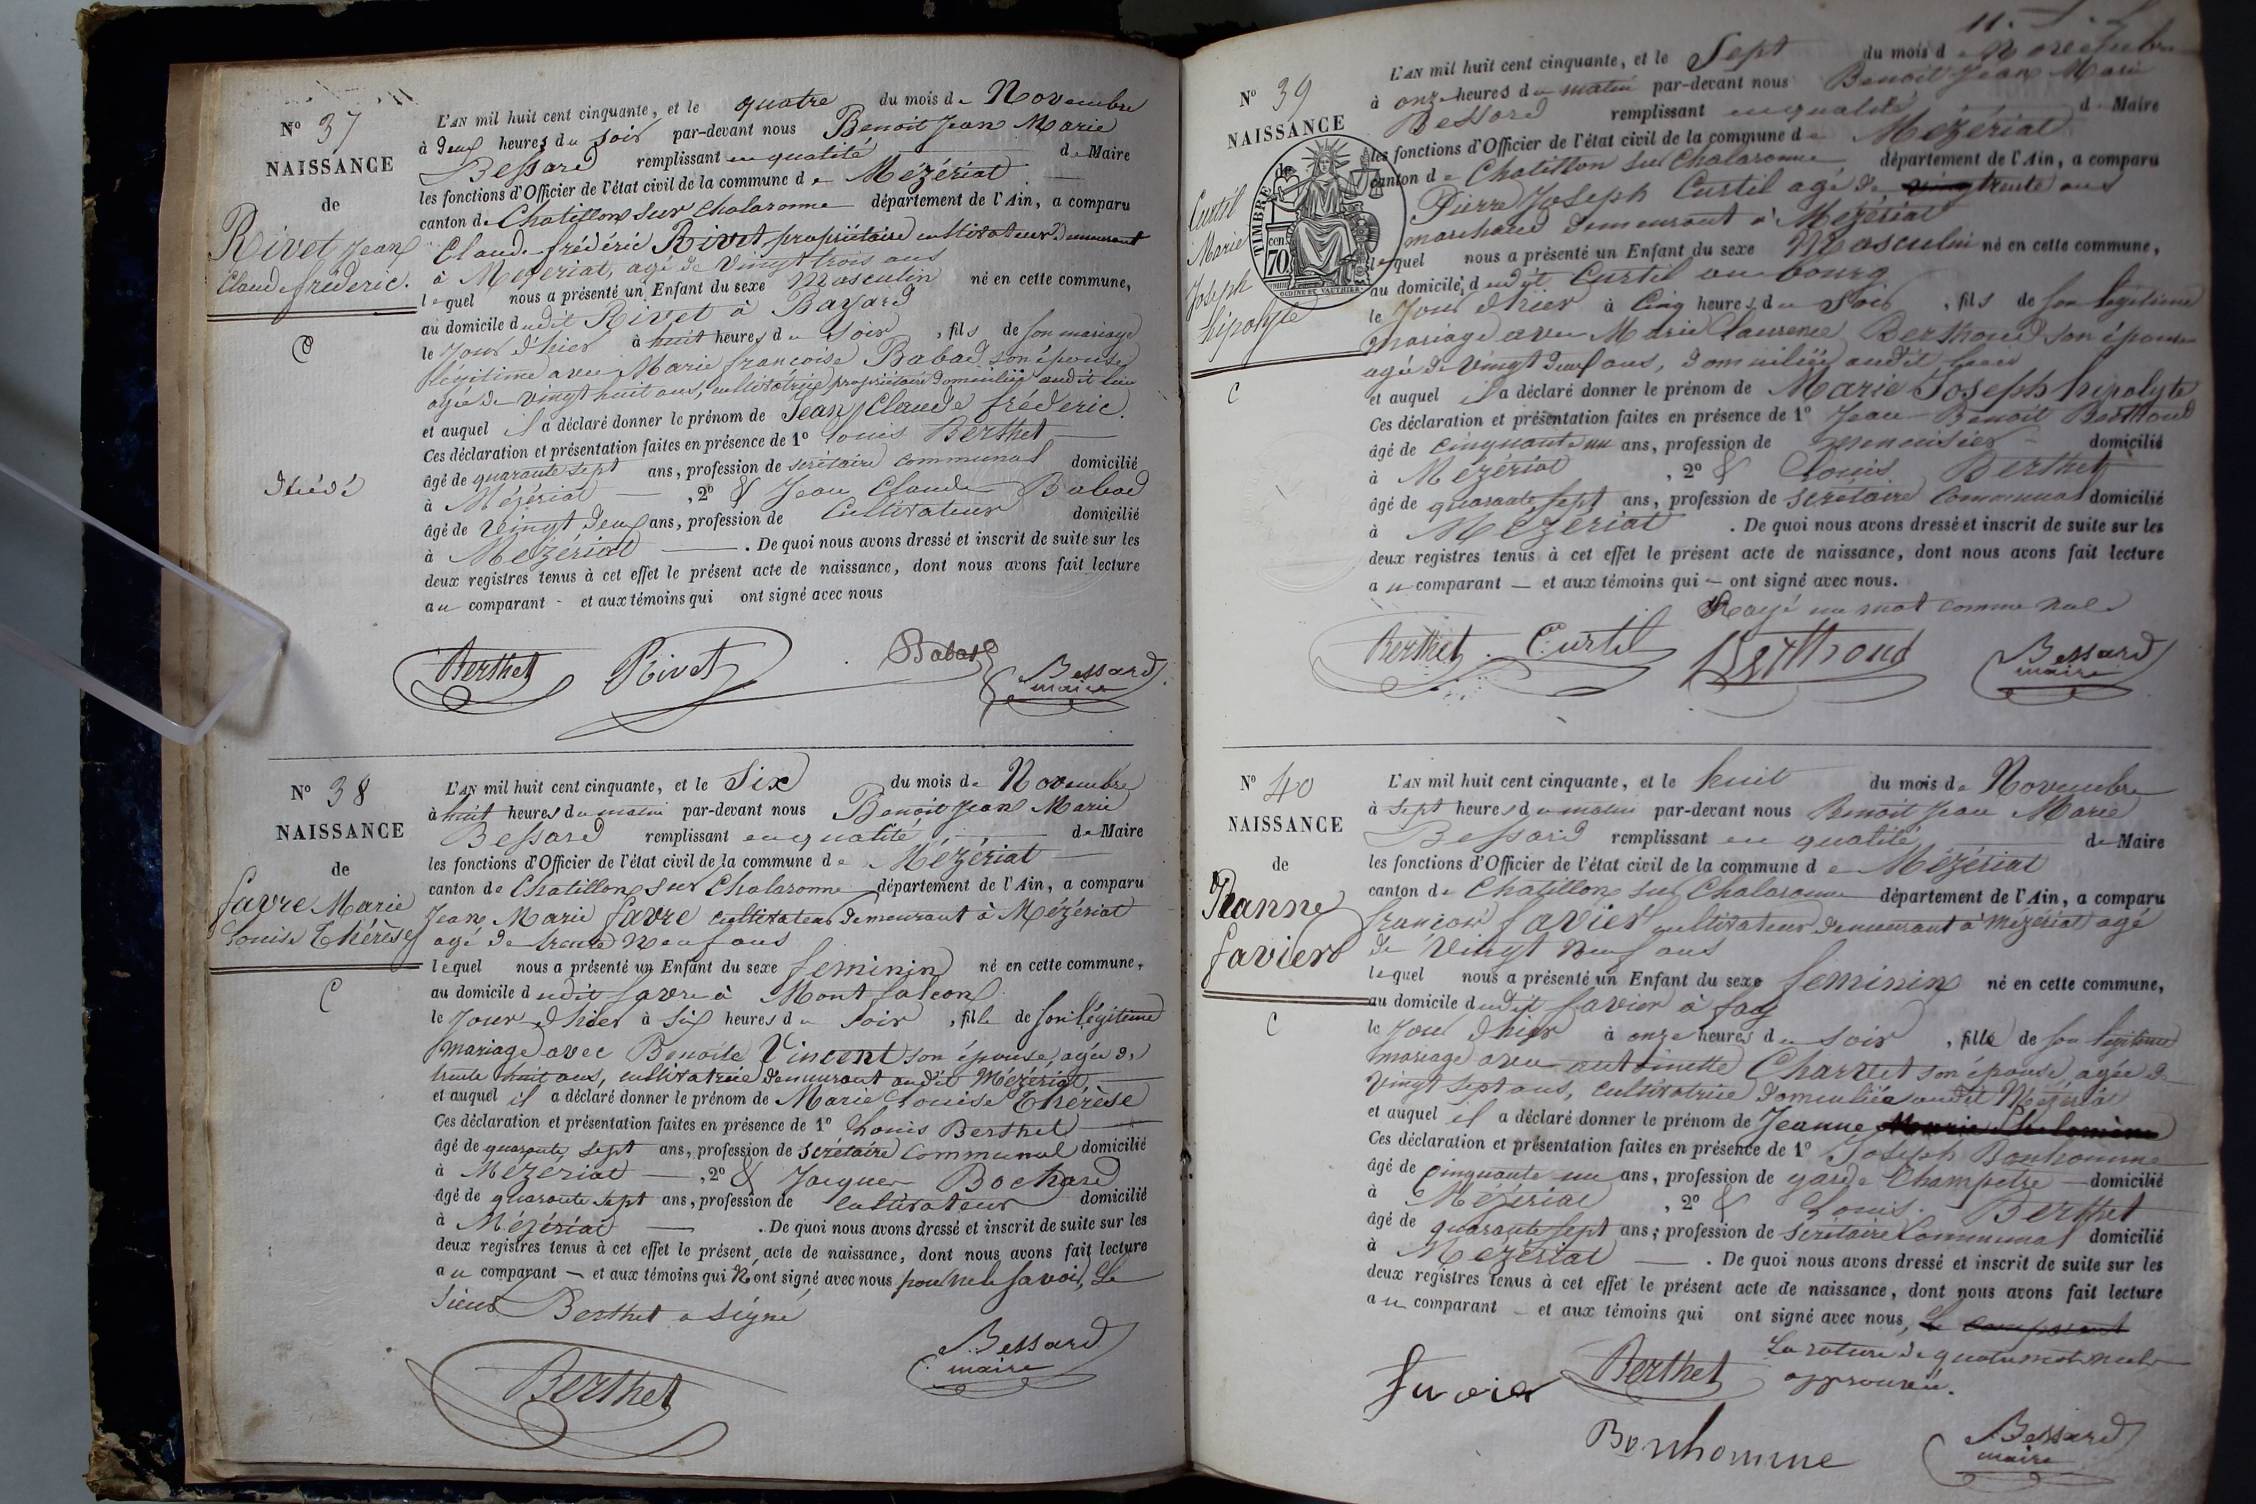 N° 37
NAISSANCE
de
Rivet Jean
Claude fréderic.
C
L'AN mil huit cent cinquante, et le quatre du mois de Novembre
à deux heures du soir par-devant nous Benoit Jean Marie
Bessard remplissant en qualité de Maire
les fonctions d'Officier de l'état civil de la commune de Mézériat
canton de Chatillon sur Chalaronne département de l'Ain, a comparu
Claude frédéric Rivet propriétaire cultivateur demeurant
à Mezeriat, agé de vingt trois ans
lequel nous a présenté un Enfant du sexe Masculin né en cette commune,
au domicile dudit Rivet à Bayard
le jour d'hier à huit heures du soir, fils de son mariage
légitime avec Marie françoise Babad son épouse
agée de vingt huit ans, cultivatrice propriétaire domiciliée audit lieu
et auquel il a déclaré donner le prénom de Jean Claude fréderic.
Ces déclaration et présentation faites en présence de 1° Louis Berthet
âgé de quarante sept ans, profession de secrétaire communal domicilié
à Mézériat, 2° & Jean Claude Babad
âgé de vingt deux ans, profession de Cultivateur domicilié
à Mézériat. De quoi nous avons dressé et inscrit de suite sur les
deux registres tenus à cet effet le présent acte de naissance, dont nous avons fait lecture
au comparant - et aux témoins qui ont signé avec nous
Berthet Rivet Babad Bessard
maire
N° 38
NAISSANCE
de
favre Marie
Louise Thérèse
C
L'AN mil huit cent cinquante, et le Six du mois de Novembre
à huit heures du matin par-devant nous Benoit Jean Marie
Bessard remplissant en qualité de Maire
les fonctions d'Officier de l'état civil de la commune de Mézériat
canton de Chatillon sur Chalaronne département de l'Ain, a comparu
Jean Marie favre cultivateur demeurant à Mézériat
agé de trente neuf ans
lequel nous a présenté un Enfant du sexe feminin né en cette commune,
au domicile dudit favre à Mont falcon
le jour d'hier à six heures du soir, fille de son légitime
mariage avec Benoite Vincent son épouse, agée de
trente huit ans, cultivatrice demeurant audit Mézériat
et auquel il a déclaré donner le prénom de Marie Louise Thérèse
Ces déclaration et présentation faites en présence de 1° Louis Berthet
âgé de quarante sept ans, profession de secrétaire Communal domicilié
à Mézériat, 2° & Jacques Bochard
âgé de quarante sept ans, profession de cultivateur domicilié
à Mézériat. De quoi nous avons dressé et inscrit de suite sur les
deux registres tenus à cet effet le présent acte de naissance, dont nous avons fait lecture
au comparant - et aux témoins qui N'ont signé avec nous pour ne le savoir, Le
sieur Berthet a signé
Berthet Bessard
maire
N° 39
NAISSANCE
de
Curtil
Marie
Joseph
hipolyte
C
TIMBRE
70 cen.
OUDINÉ ET VAUTHIER
L'AN mil huit cent cinquante, et le Sept du mois de Novembre
à onze heures du matin par-devant nous Benoit Jean Marie
Bessard remplissant en qualité de Maire
les fonctions d'Officier de l'état civil de la commune de Mézériat
canton de Chatillon sur Chalaronne département de l'Ain, a comparu
Pierre Joseph Curtil agé de vingt trente ans
marchand demeurant à Mézériat
lequel nous a présenté un Enfant du sexe Masculin né en cette commune,
au domicile, dudit Curtil au bourg
le jour d'hier à Cinq heures du Soir, fils de son légitime
mariage avec Marie Laurence Berthoud son épouse
agée de vingt deux ans, domiciliée audit lieu
et auquel il a déclaré donner le prénom de Marie Joseph hipolyte
Ces déclaration et présentation faites en présence de 1° Jean Benoit Berthoud
âgé de cinquante un ans, profession de menuisier domicilié
à Mézériat, 2° & Louis Berthet
âgé de quarante sept ans, profession de secrétaire Communal domicilié
à Mézériat. De quoi nous avons dressé et inscrit de suite sur les
deux registres tenus à cet effet le présent acte de naissance, dont nous avons fait lecture
au comparant - et aux témoins qui - ont signé avec nous.
Rayé un mot comme nul
Berthet Curtil Berthoud Bessard
maire
N° 40
NAISSANCE
de
Jeanne
favier
C
L'AN mil huit cent cinquante, et le huit du mois de Novembre
à sept heures du matin par-devant nous Benoit Jean Marie
Bessard remplissant en qualité de Maire
les fonctions d'Officier de l'état civil de la commune de Mézériat
canton de Chatillon sur Chalaronne département de l'Ain, a comparu
françois favier cultivateur demeurant à Mézériat agé
de vingt neuf ans
lequel nous a présenté un Enfant du sexe feminin né en cette commune,
au domicile dudit favier à fay
le jour d'hier à onze heures du soir, fille de son légitime
mariage avec antoinette Charvet son épouse, agée de
vingt sept ans, cultivatrice domiciliée audit Mézériat
et auquel il a déclaré donner le prénom de Jeanne
Ces déclaration et présentation faites en présence de 1° Joseph Bonhomme
âgé de cinquante un ans, profession de garde Champetre domicilié
à Mézériat, 2° & Louis Berthet
âgé de quarante sept ans, profession de secrétaire Communal domicilié
à Mézériat. De quoi nous avons dressé et inscrit de suite sur les
deux registres tenus à cet effet le présent acte de naissance, dont nous avons fait lecture
au comparant - et aux témoins qui ont signé avec nous, Le comparant
La rature de quatre mots nuls
approuvée.
favier Berthet
Bonhomme Bessard
maire